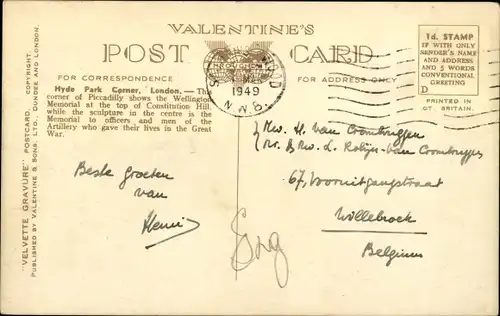 VALENTINE'S
POST CARD
FOR CORRESPONDENCE
FOR ADDRESS ONLY
1d. STAMP
IF WITH ONLY
SENDER'S NAME
AND ADDRESS
AND 5 WORDS
CONVENTIONAL
GREETING
D
PRINTED IN
GT BRITAIN.
1949
N.W.6.
Hyde Park Corner, London.— This
corner of Piccadilly shows the Wellington
Memorial at the top of Constitution Hill,
while the sculpture in the centre is the
Memorial to officers and men of the
Artillery who gave their lives in the Great
War.
"VELVETTE GRAVURE" POSTCARD. COPYRIGHT.
PUBLISHED BY VALENTINE & SONS, LTD., DUNDEE AND LONDON.
Beste groeten
van
Henri
Mw. H. van Crombruggen
Mr. & Mw. L. Robijn-van Crombruggen
67, Vooruitgangstraat
Willebroek
Belgium